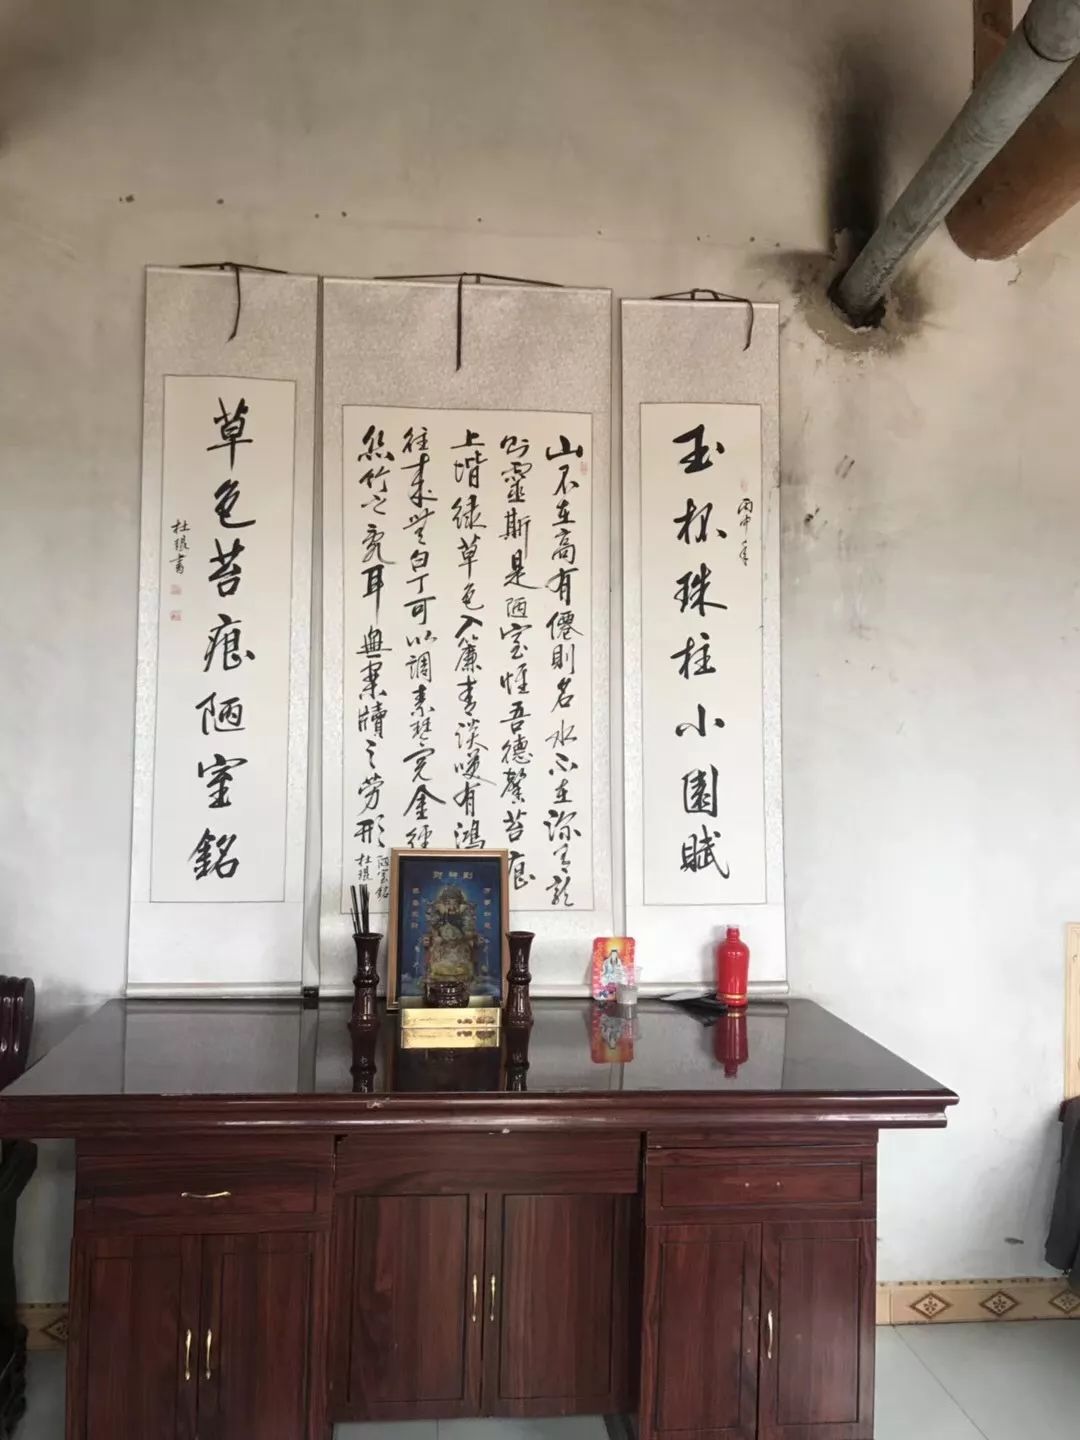 丙申年
玉杯珠柱小園賦
山不在高有僊則名水不在深有龍
則靈斯是陋室惟吾德馨苔痕
上堦緑草色入簾青談咲有鴻
往来無白丁可以調素琴閱金經
絲竹之亂耳無案牘之勞形
陋室銘
杜琨
草色苔痕陋室銘
杜琨書